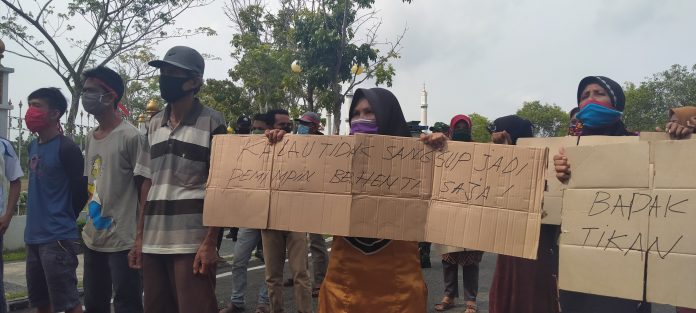 KALAU TIDAK SANGGUP JADI
PEMIMPIN BERHENTI SAJA!
BADAK
TIKAN